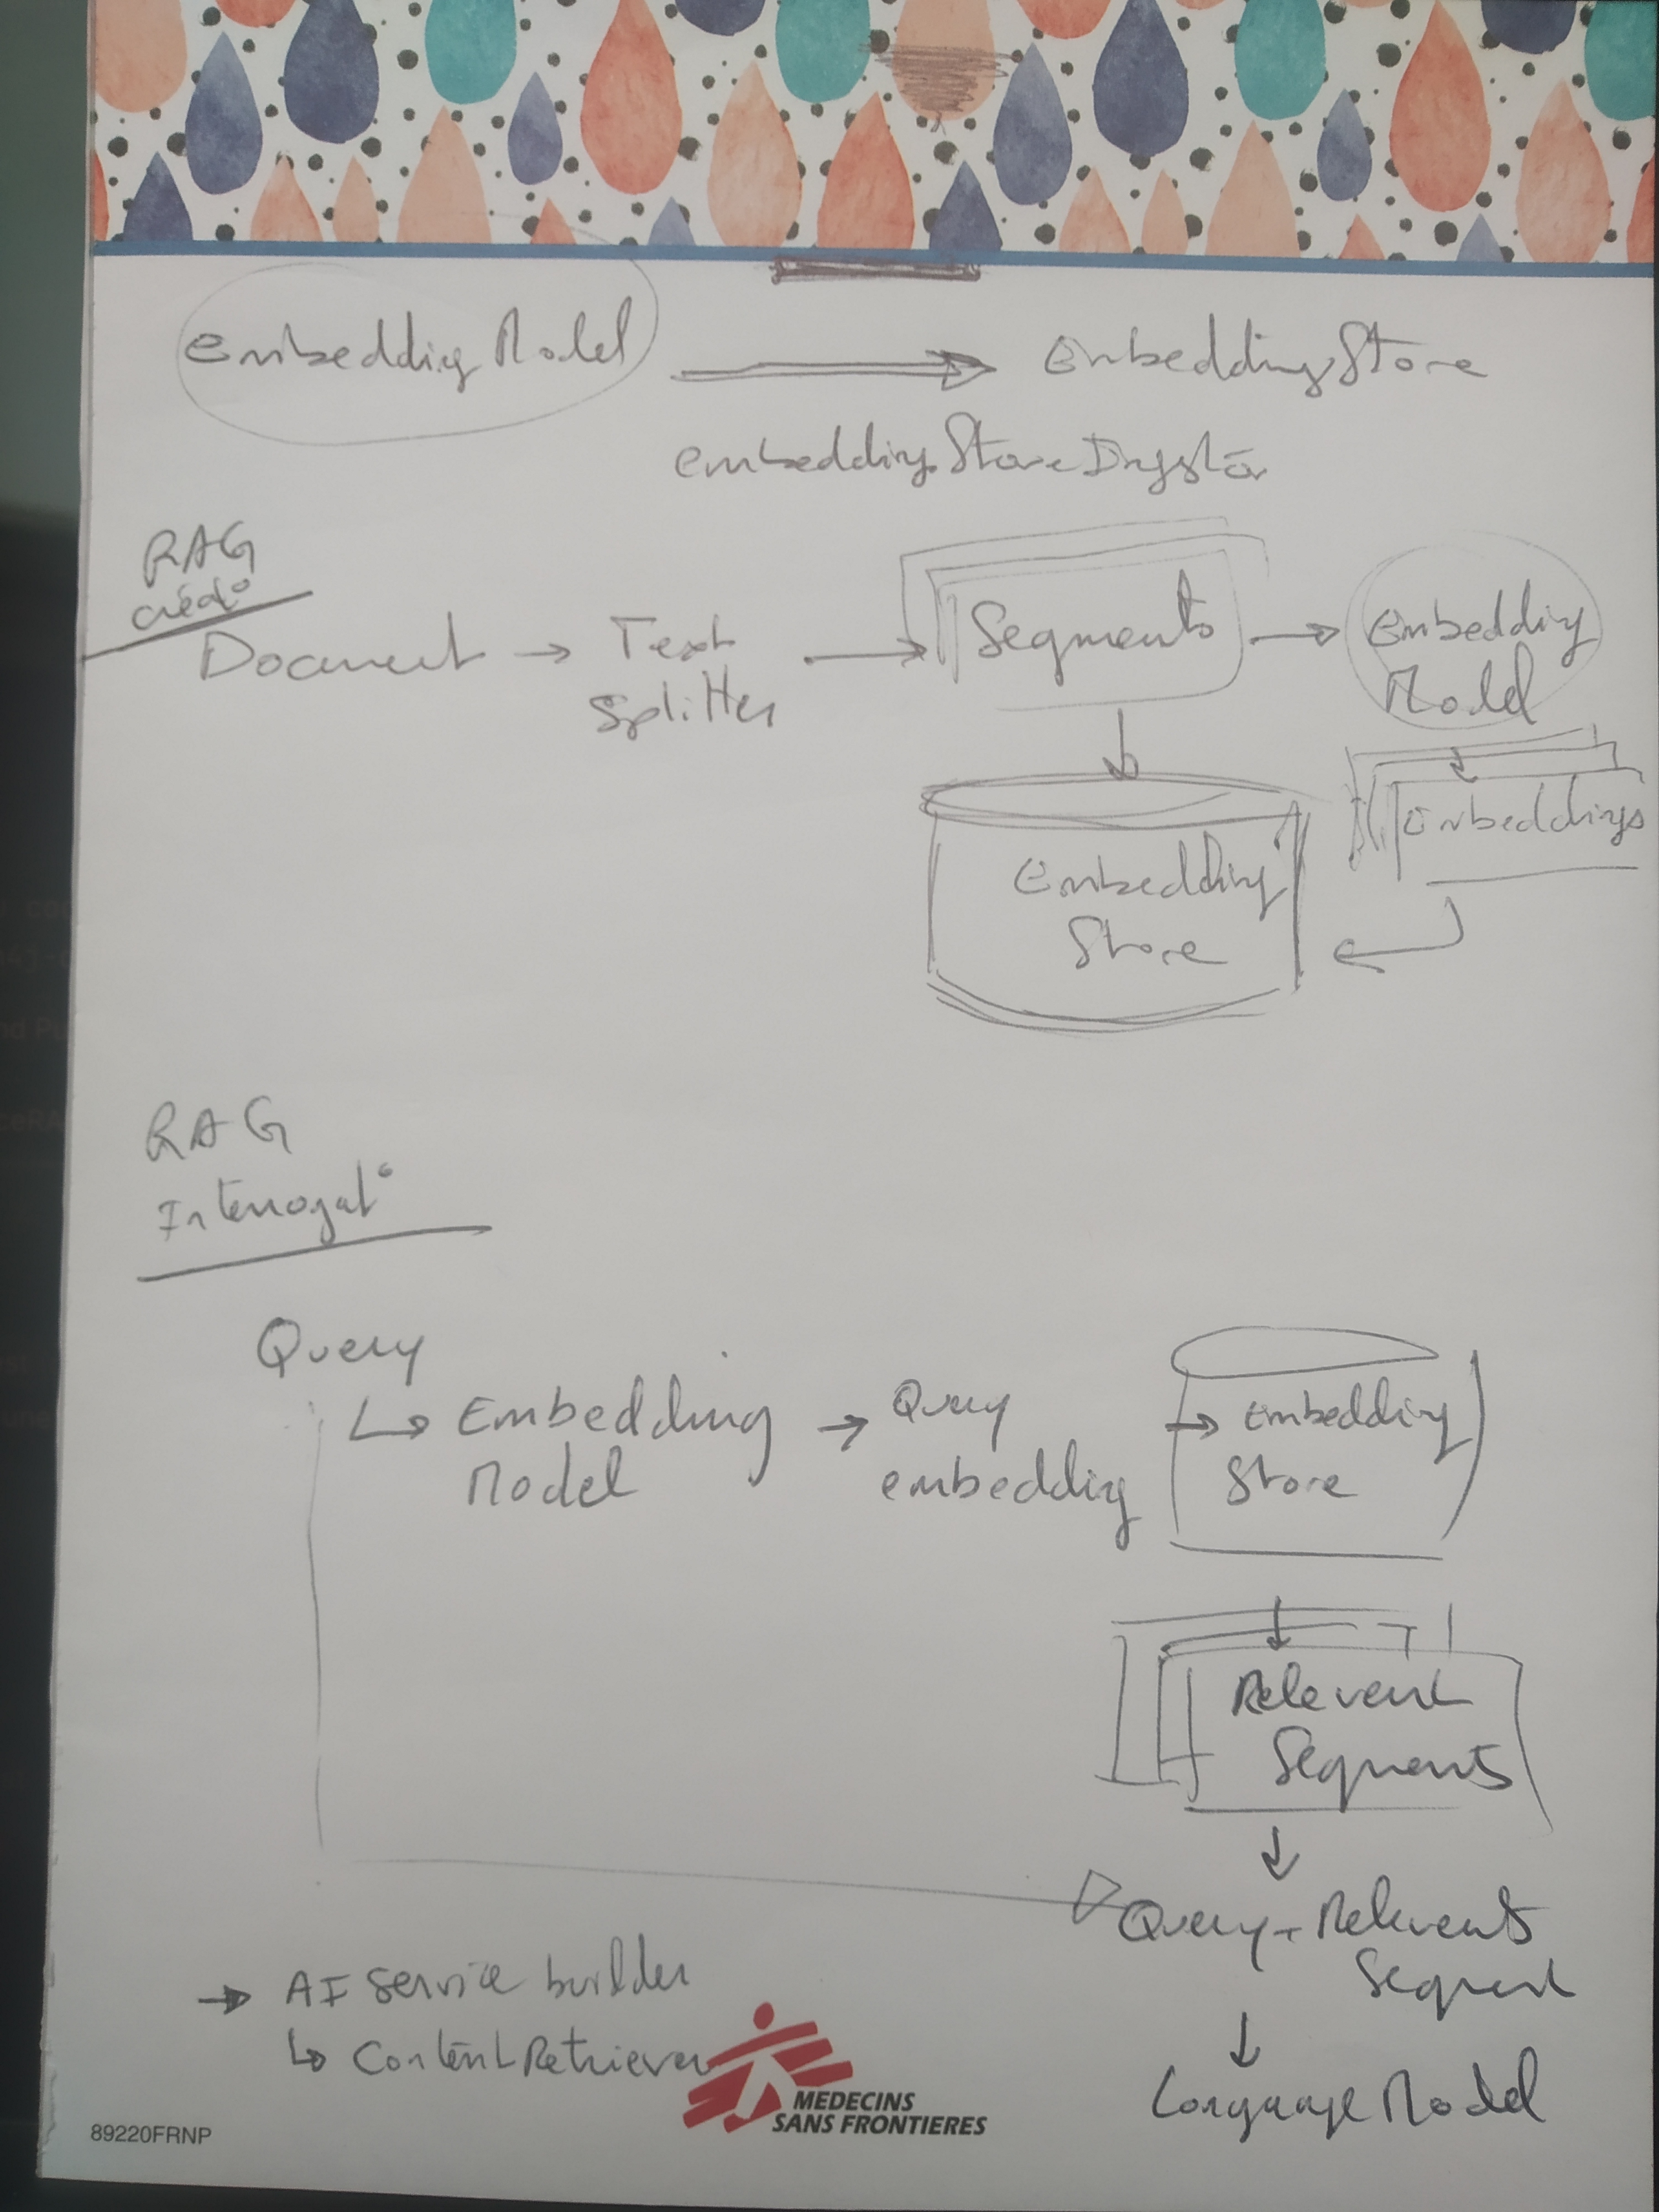 Embedding Model
Embedding Store
embedding Store Ingestor
RAG
créat°
Document → Text
Splitter
→ Segments
→ Embedding
Model
Embeddings
Embedding
Store
RAG
Interrogat°
Query
↳ Embedding
Model
→ Query
embedding
→ Embedding
Store
Relevent
Segments
Query + Relevents
Segment
Language Model
→ AI service builder
↳ Content Retriever
MEDECINS
SANS FRONTIERES
89220FRNP